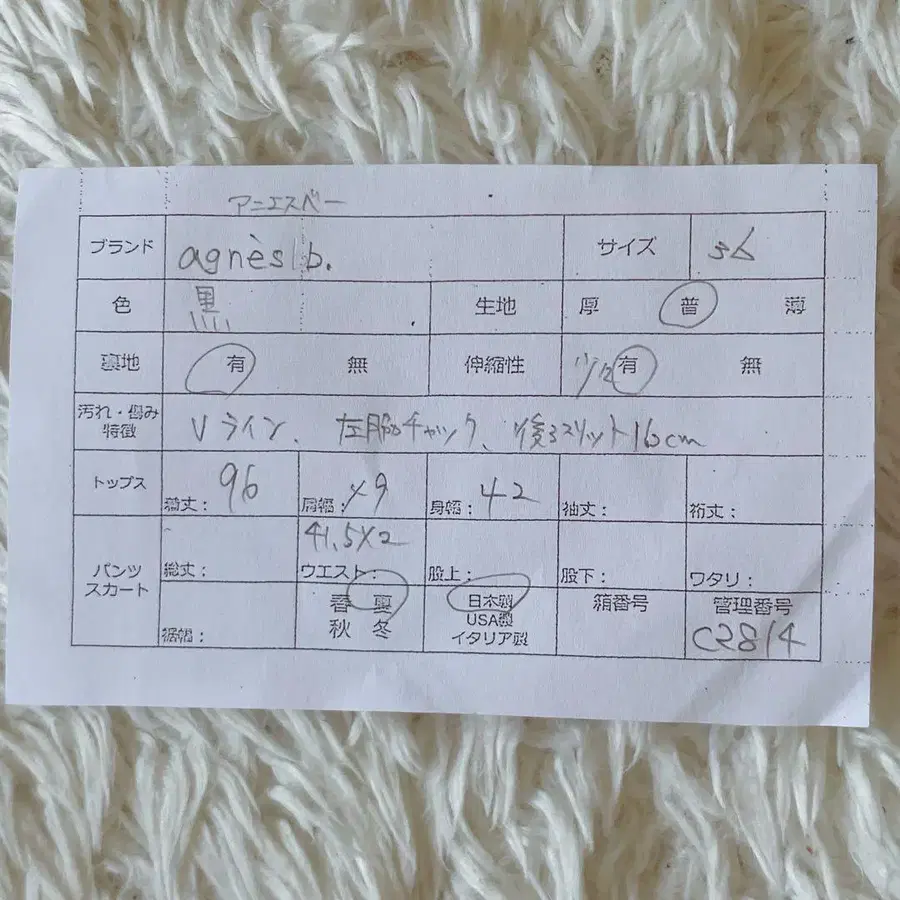 アニエスベー
ブランド agnès b. サイズ 36
色 黒 生地 厚 普 薄
裏地 有 無 伸縮性 有 無
汚れ・傷み
特徴 Vライン、左脇チャック、後ろスリット16cm
トップス 着丈: 96 肩幅: 身幅: 42 袖丈: 裄丈:
41.5×2
パンツ
スカート 総丈: ウエスト: 股上: 股下: ワタリ:
裾幅: 春 夏 秋 冬 日本製 USA製 イタリア製 箱番号 管理番号 C2814